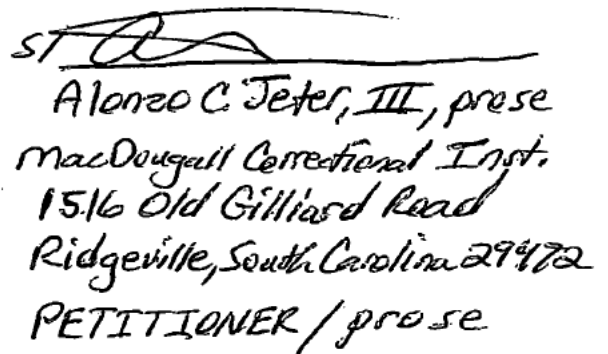 S/
Alonzo C. Jeter, III, prose
MacDougall Correctional Inst.
1516 Old Gilliard Road
Ridgeville, South Carolina 29472
PETITIONER / prose